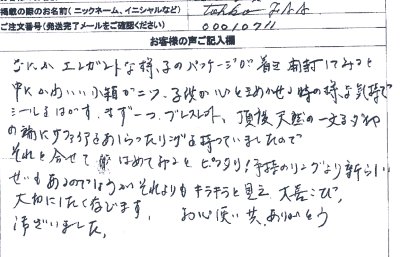 掲載の際のお名前(ニックネーム、イニシャルなど)
ご注文番号(発送完了メールをご確認ください) 00010711
お客様の声ご記入欄
なにかエレガントな様子のパッケージが着き開封してみると
中にかわいい小箱が二つ、子供が心ときめかせる時の様な気持で
シールをはがす。まず一つ、ブレスレット、頂度天然の一文字ダイヤ
の両端にサファイアをあしらったリングを持っていましたので
それと合せてはめてみるとピッタリ!手持のリングより新らしい
せいもあるのでしょうがそれよりもキラキラと見え、大喜こび。
大切にしたく存じます。 お心使い共、ありがとう
ございました。